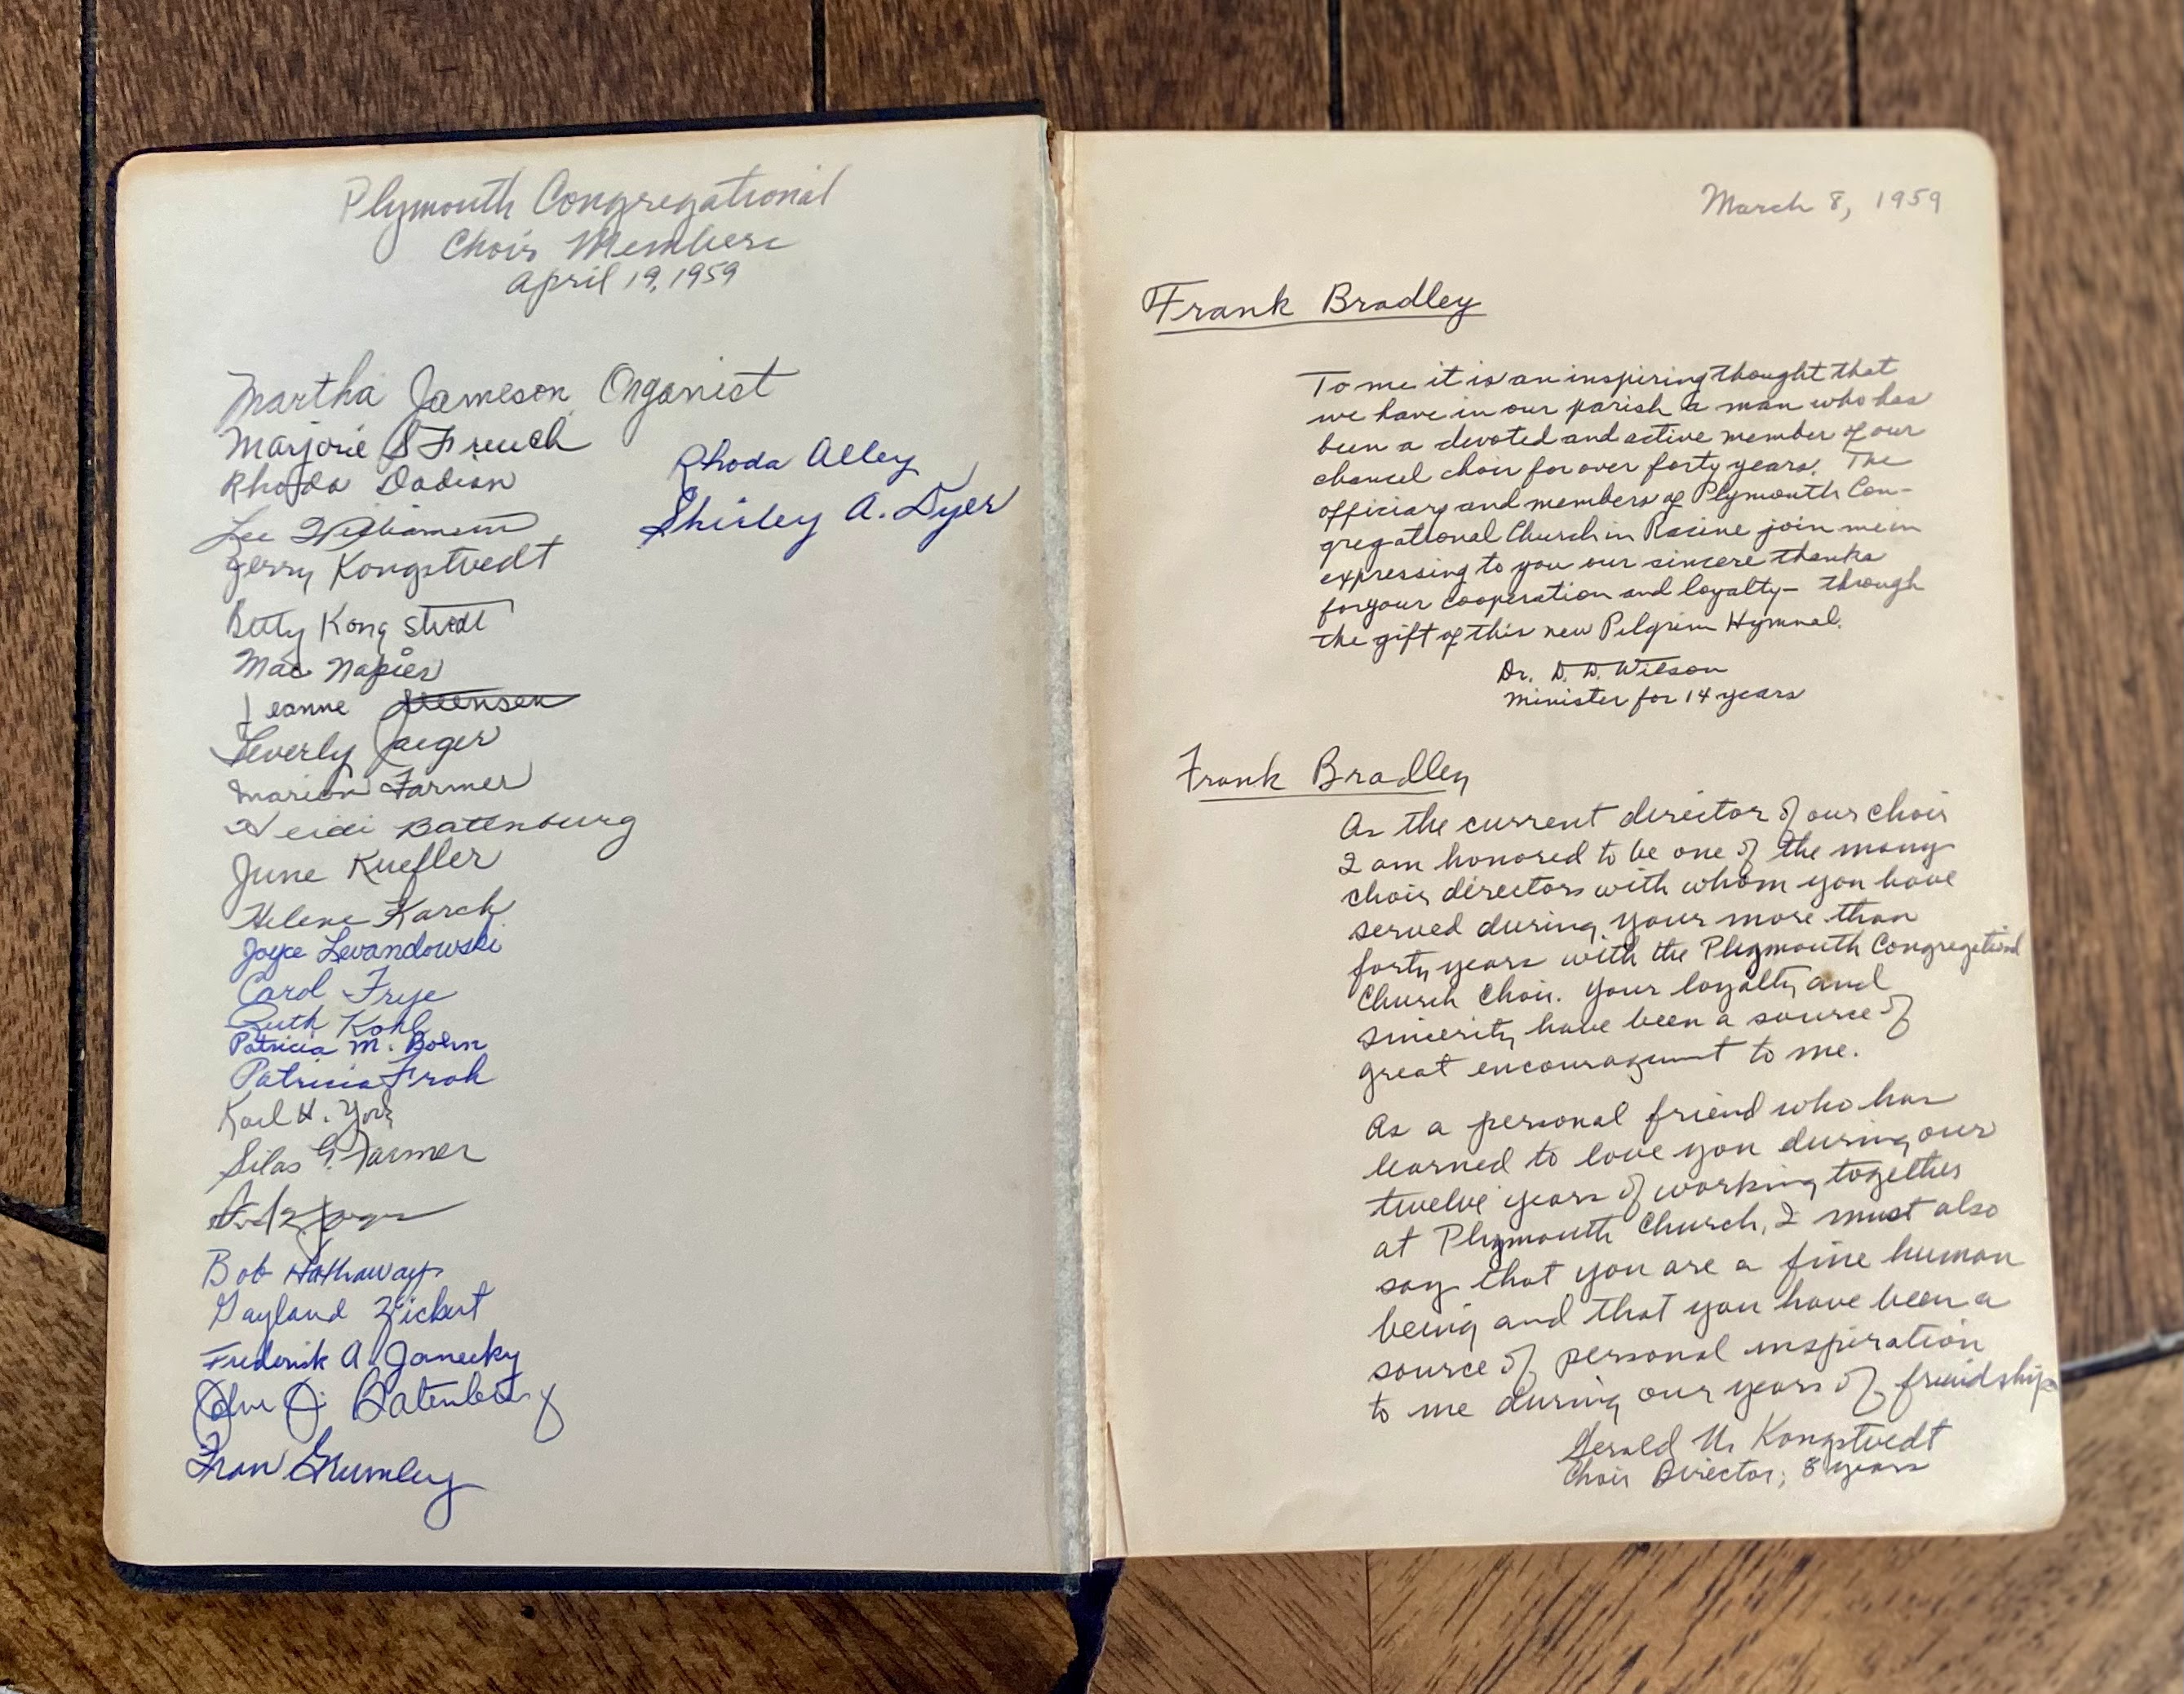 Plymouth Congregational
Choir Members
April 19, 1959
Martha Jameson, Organist
Marjorie S French
Rhoda Dadian
Lee Williamson
Jerry Kongstvedt
Betty Kongstvedt
Mac Napier
Jeanne
Beverly Jaeger
Marion Farmer
Heidi Battenburg
June Kuefler
Helene Karch
Joyce Levandowski
Carol Frye
Ruth Kohl
Patricia M. Bohn
Patricia Froh
Karl H. York
Silas G. Farmer
Bob Hathaway
Gayland Zickert
Frederick A. Janecky
J. Batenburg
Fran Grumley
Rhoda Alley
Shirley A. Dyer
March 8, 1959
Frank Bradley
To me it is an inspiring thought that
we have in our parish a man who has
been a devoted and active member of our
chancel choir for over forty years. The
officiary and members of Plymouth Con-
gregational Church in Racine join me in
expressing to you our sincere thanks
for your cooperation and loyalty – through
the gift of this new Pilgrim Hymnal.
Dr. D. D. Wilson
Minister for 14 years
Frank Bradley
As the current director of our choir
I am honored to be one of the many
choir directors with whom you have
served during your more than
forty years with the Plymouth Congregational
Church Choir. Your loyalty and
sincerity have been a source of
great encouragement to me.
As a personal friend who has
learned to love you during our
twelve years of working together
at Plymouth Church, I must also
say that you are a fine human
being and that you have been a
source of personal inspiration
to me during our years of friendship
Gerald N. Kongstvedt
Choir Director, 8 years